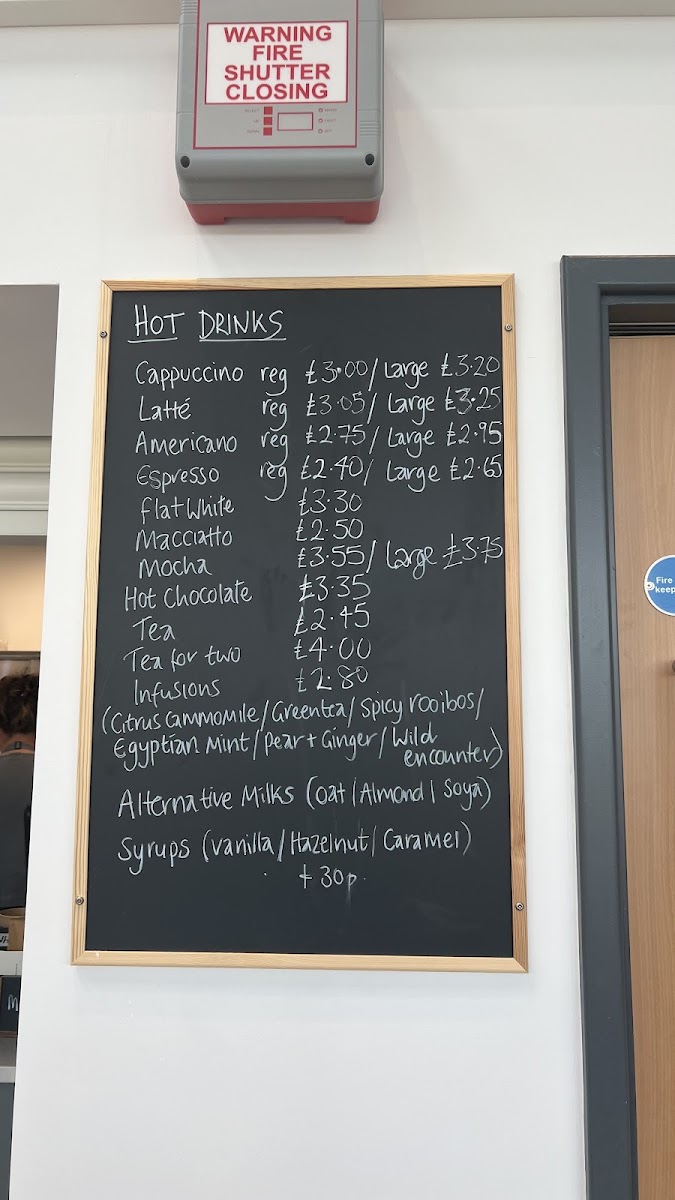 WARNING
FIRE
SHUTTER
CLOSING
HOT DRINKS
Cappuccino reg £3.00/ Large £3.20
Latté reg £3.05/ Large £3.25
Americano reg £2.75/ Large £2.95
Espresso reg £2.40/ Large £2.65
Flat White £3.30
Macciatto £2.50
Mocha £3.55/ Large £3.75
Hot Chocolate £3.35
Tea £2.45
Tea for two £4.00
Infusions £2.80
(Citrus Cammomile/Greentea/Spicy rooibos/
Egyptian Mint/Pear + Ginger/Wild
encounter)
Alternative Milks (Oat/Almond/Soya)
Syrups (Vanilla/Hazelnut/Caramel)
+ 30p.
Fire
keep